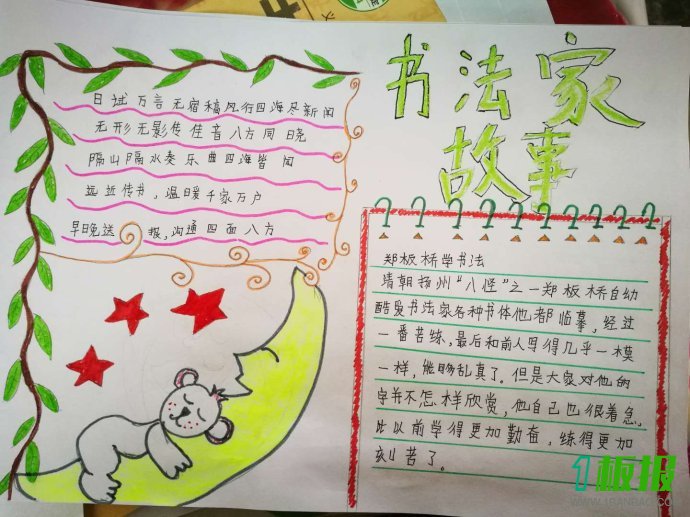 书法家
故事
日试万言无宿稿风行四海尽新闻
无形无影传佳音八方同晓
隔山隔水奏乐曲四海皆闻
远近传书，温暖千家万户
早日晚送报，沟通四面八方
郑板桥学书法
清朝扬州“八怪”之一郑板桥自幼
酷爱书法家名种书体他都临摹，经过
一番苦练，最后和前人写得几乎一模
一样，能够乱真了。但是大家对他的
字并不怎样欣赏，他自己也很着急，
比以前学得更加勤奋，练得更加
刻苦了。
1板报
WWW.1BANBAO.COM